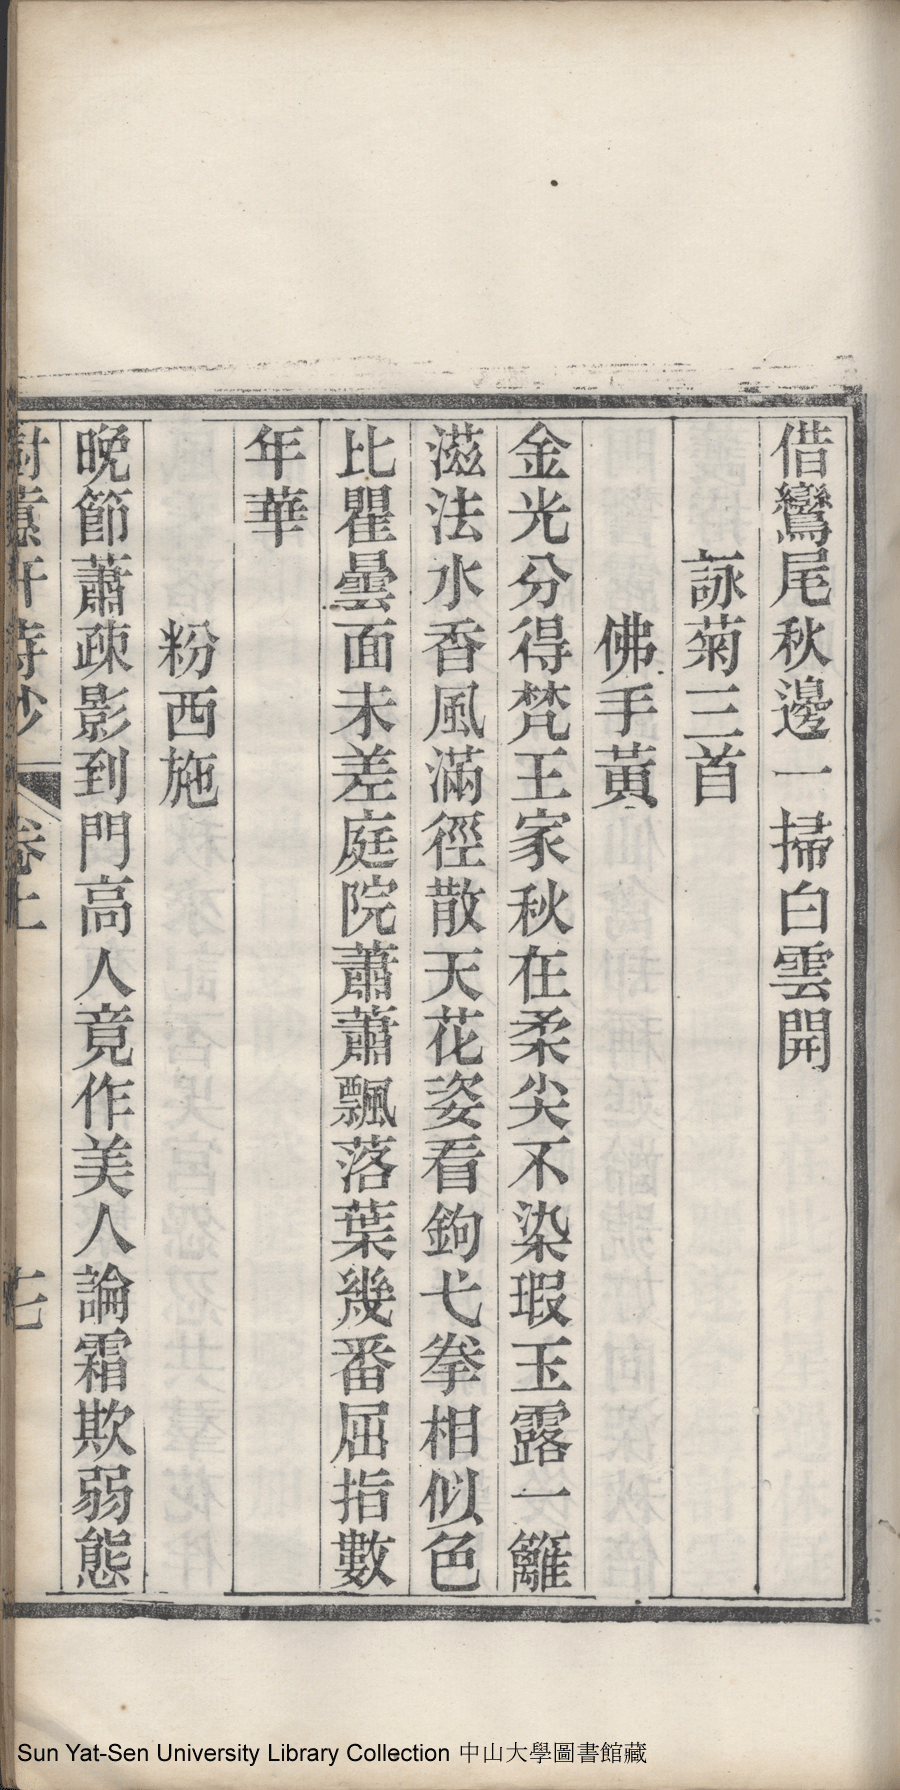 借鸞尾秋邊一掃白雲開
詠菊三首
佛手黃
金光分得梵王家秋在柔尖不染瑕玉露一籬
滋法水香風滿徑散天花姿看鉤弋拳相似色
比瞿曇面未差庭院蕭蕭飄落葉幾番屈指數
年華
粉西施
晚節蕭疎影到門高人竟作美人論霜欺弱態
樹蕙軒詩鈔 卷上 十七
Sun Yat-Sen University Library Collection 中山大學圖書館藏